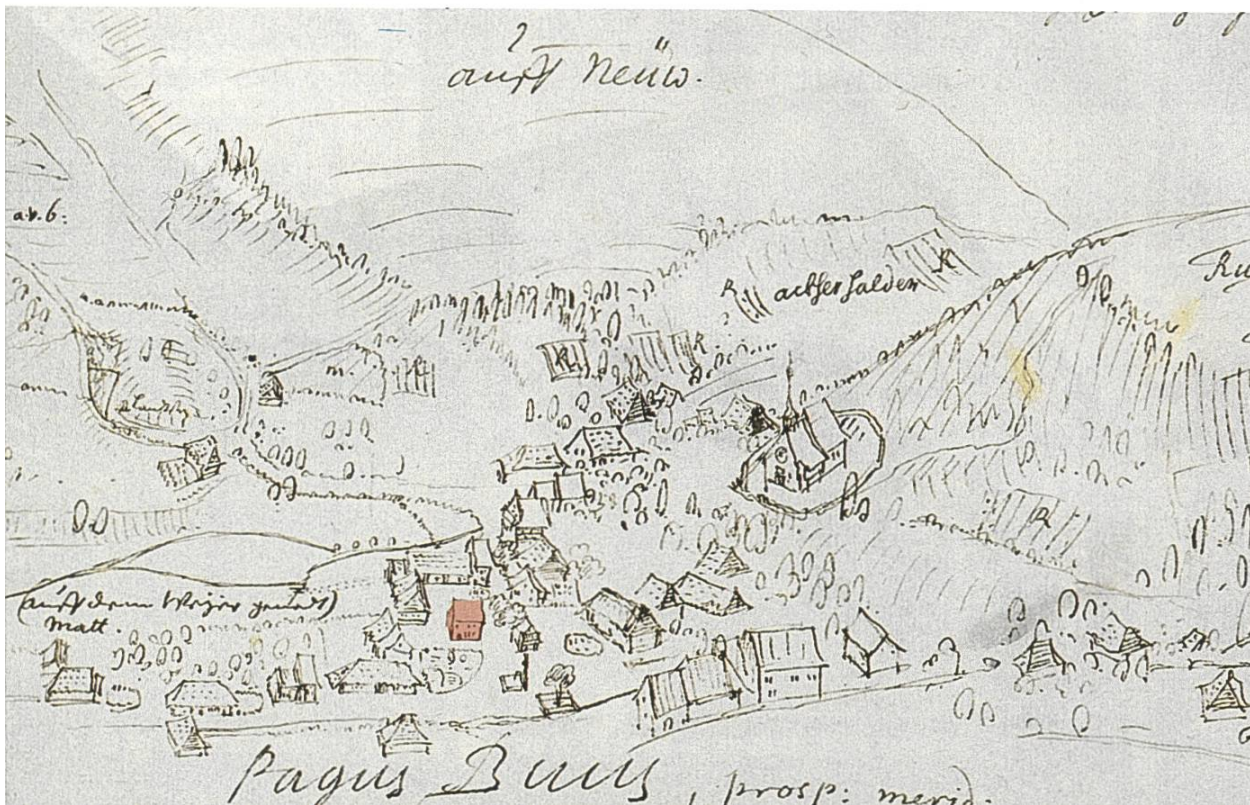 auff Neüw.
a.v.6:
R
acker halden
R
R
R.
m.
R
(auff dem Weyer genant)
Matt.
Pagus Buus, prosp: merid.